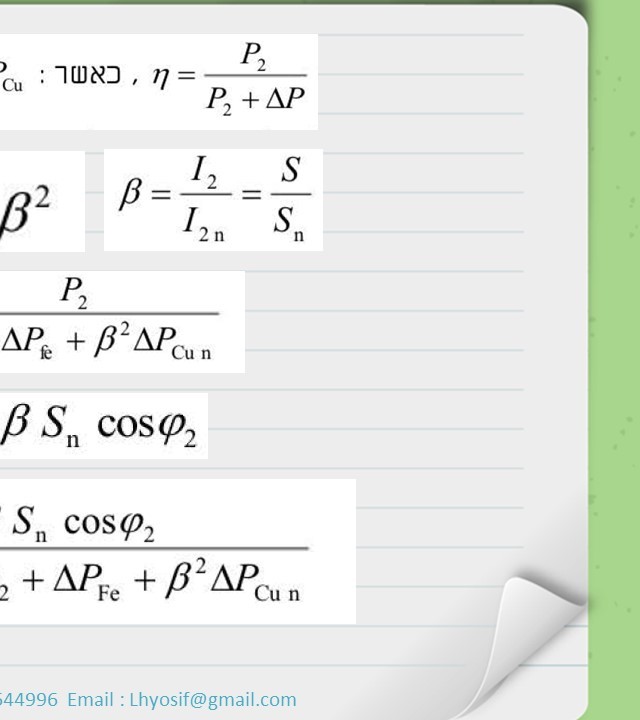 P_Cu : כאשר , η = P₂ / (P₂ + ΔP)
β²
β = I₂ / I₂ₙ = S / Sₙ
P₂ / ΔP_fe + β² ΔP_Cu n
β Sₙ cosφ₂
Sₙ cosφ₂ / ₂ + ΔP_Fe + β² ΔP_Cu n
544996 Email : Lhyosif@gmail.com